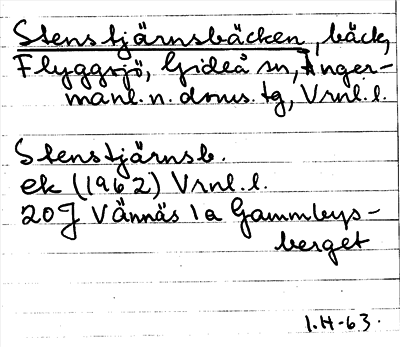 Stenstjärnsbäcken, bäck,
Flyggsjö, Gideå sn, Ånger-
manl. n. doms. tg, Vrnl. l.
Stenstjärnsb.
ek (1962) Vrnl. l.
20J Vännäs 1a Gammbys-
berget
1.H-63.